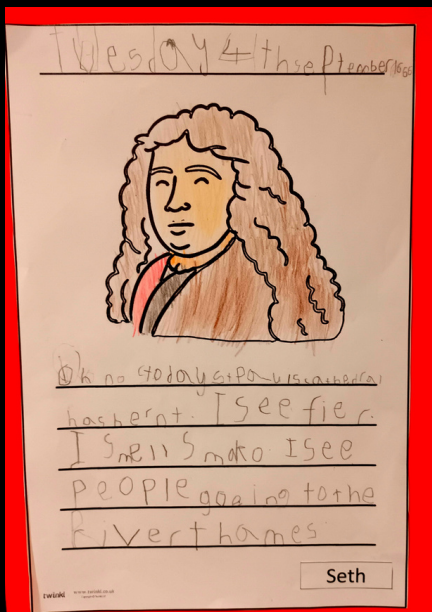 Tuesday 4th september 1666
Oh no today st Pauls cathedral
has bernt. I see fier.
I smell smoko I see
people goaing to the
River thames
twinkl www.twinkl.co.uk
Seth